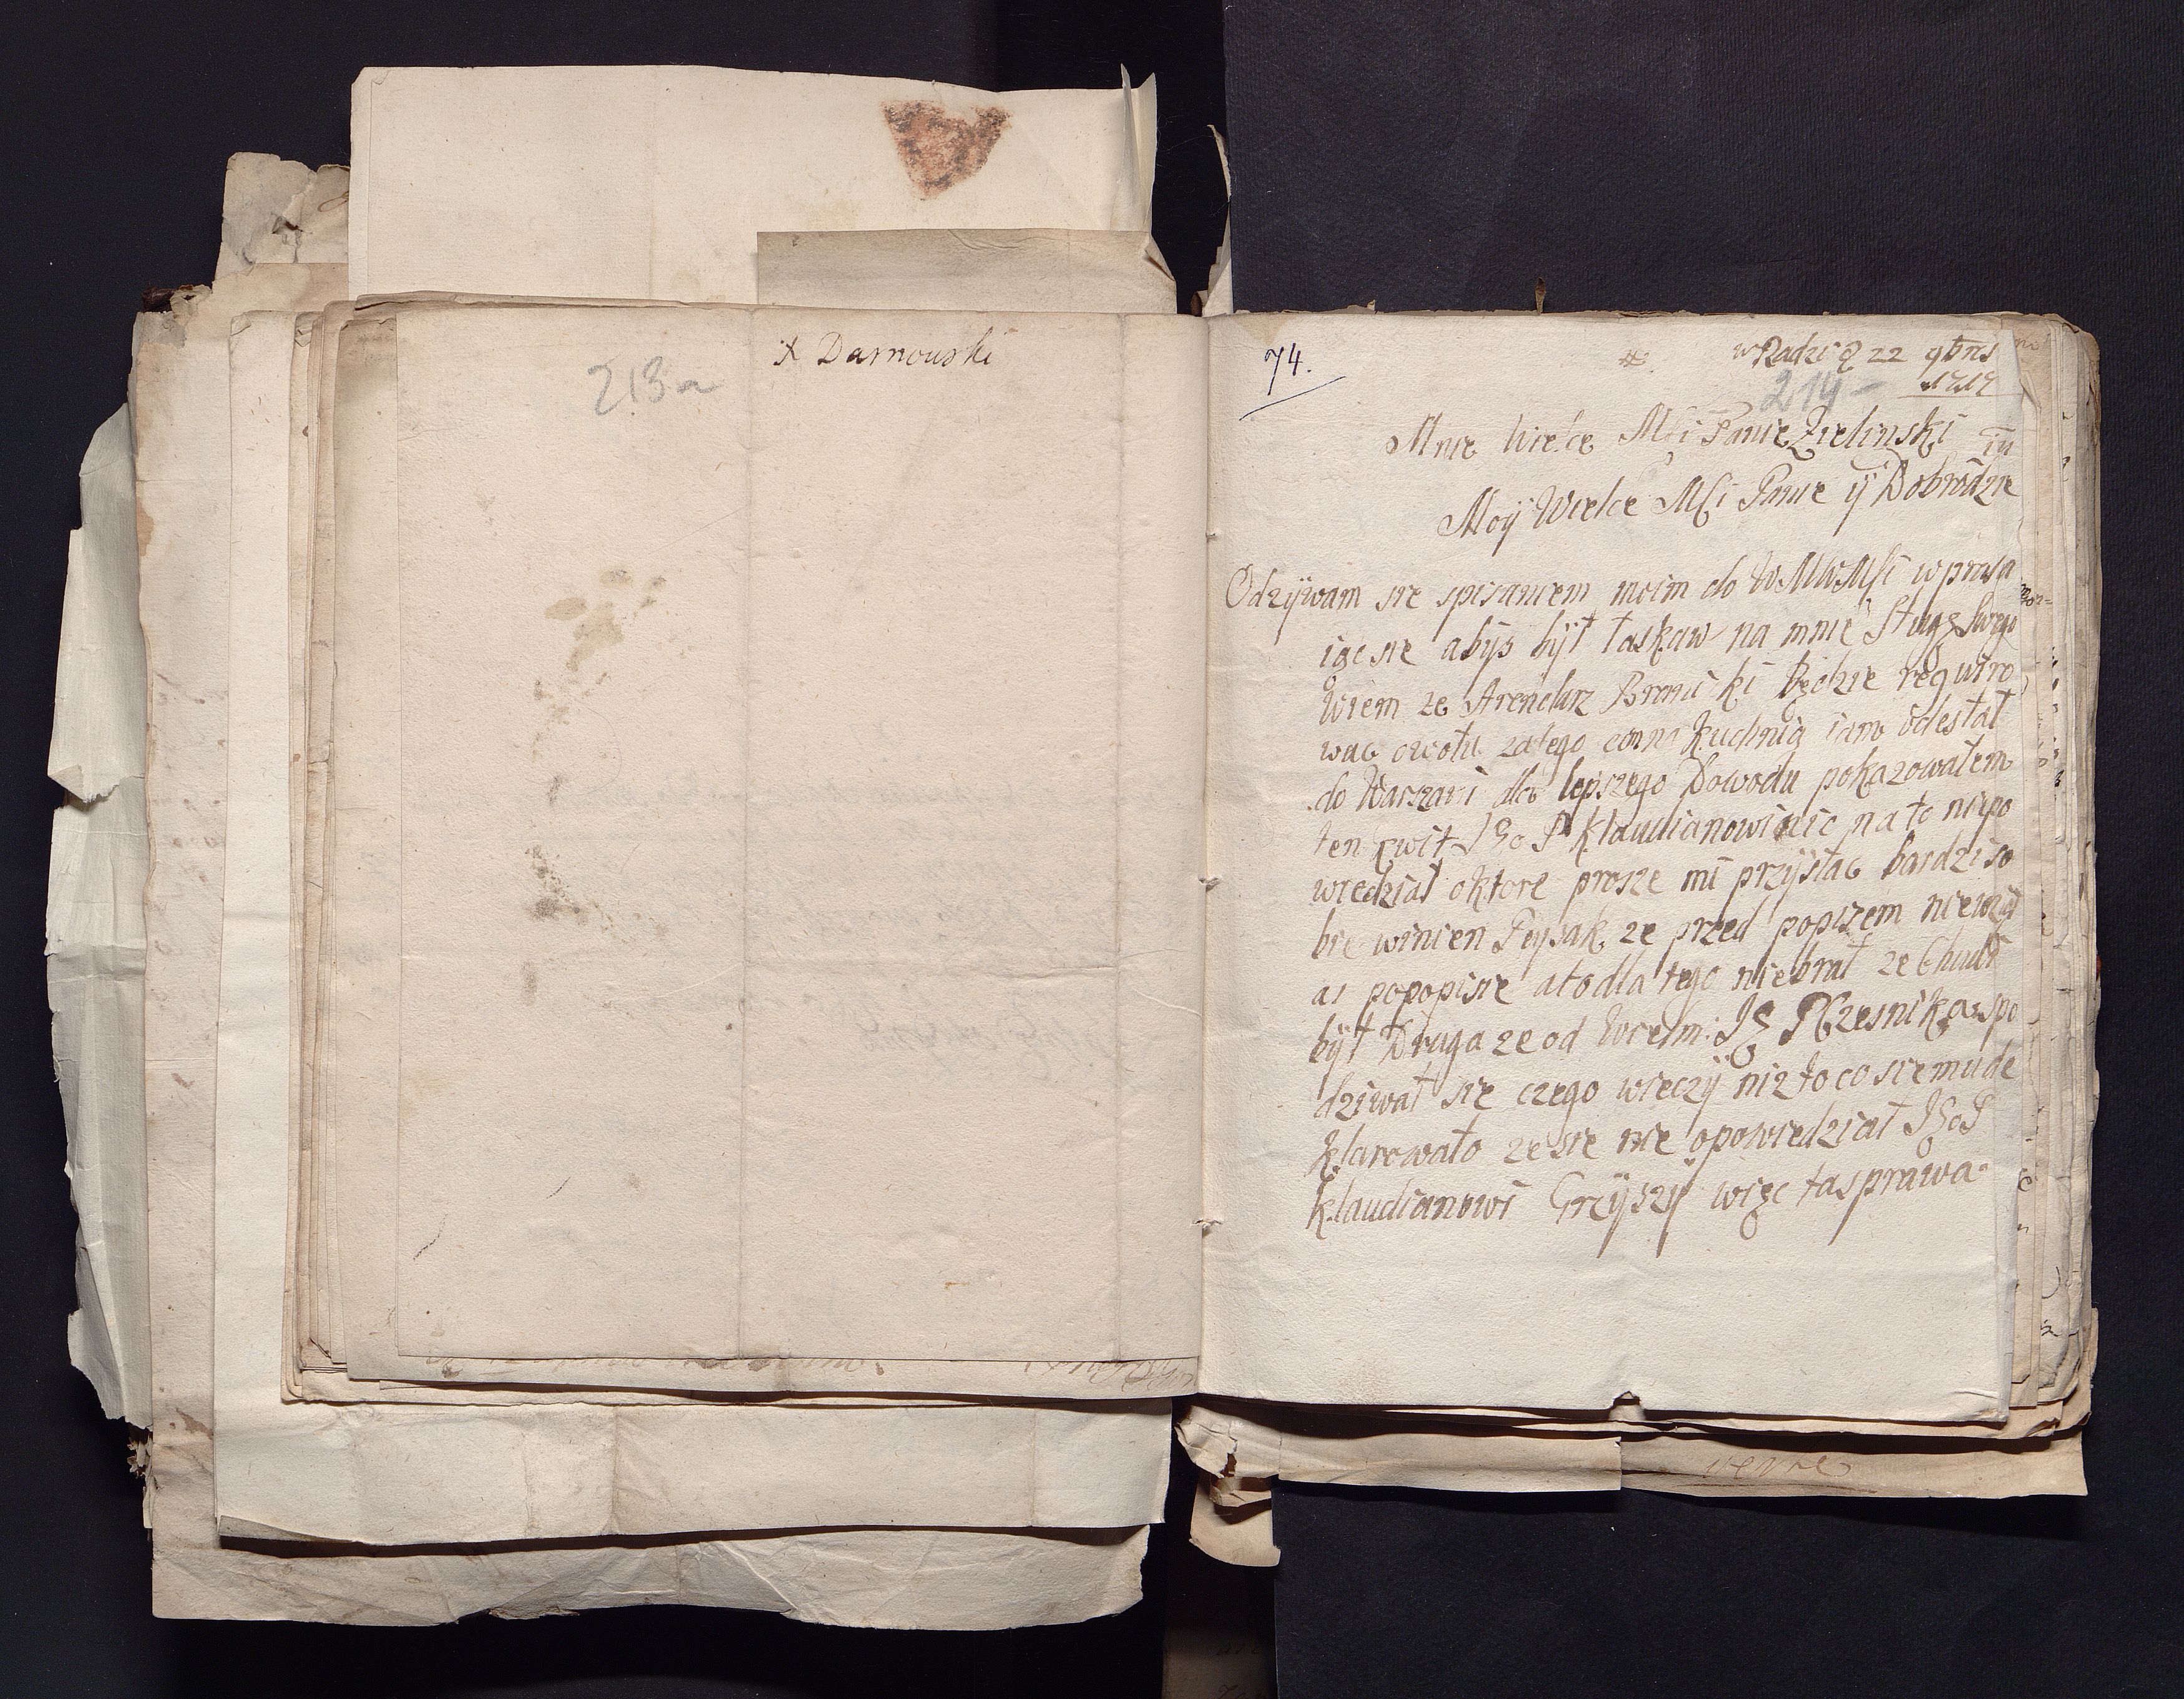 X Darnowski
213a
74.
w Radzi 22 9bris
1717
214
Mnie Wielce Mści Panie Zielinski
Moÿ Wielce Mści Panie ÿ Dobrodzie
Odzÿwam sie spisaniem moim do WMWMści wprasza
iąc sie abÿs bÿł łaskaw na mnie Sługę swego
Wiem ze Arendarz Branicki będzie requiro
wac owołu zatego co na kuchnią iam odesłał
do Warszawi dla lepszego Dowodu pokazowałem
ten kwit Klaudianowi nic na to niepo
wiedział oktore prosze mi przÿsłac bardzi so
bie winien Peÿsak ze przed popisem niewziął
az popopisie atodlatego niebrał ze Chudi
bÿł Druga ze od Wielm: Cześnika spo
dziwał sie czego wieczÿ niz to co sie mu de
klarowało ze sie nie opowiedział
Klaudianowi Grzÿszÿ więc ta sprawa